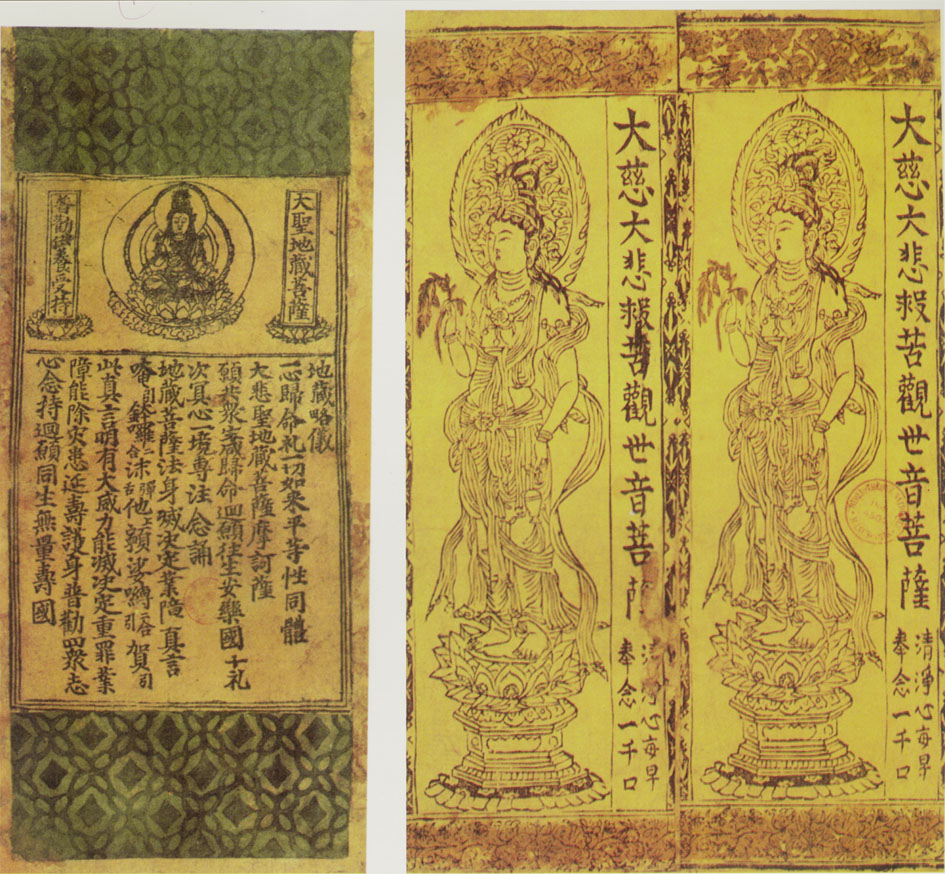 大聖地藏菩薩
普勸供養受持
地藏略儀
一心歸命礼一切如來平等性同體
大悲聖地藏菩薩摩訶薩
願共衆生咸歸命迴願往生安樂國 十礼
次冥心一境專注念誦
地藏菩薩法身滅決定業障真言
唵 鉢囉二合 沫 他 娑嚩二合 賀引
此真言明有大威力能滅決定重罪業
障能除灾患延壽護身普勸四衆志
心念持迴願同生無量壽國
大慈大悲救苦觀世音菩薩
清淨心每早
奉念一千口
大慈大悲救苦觀世音菩薩
清淨心每早
奉念一千口